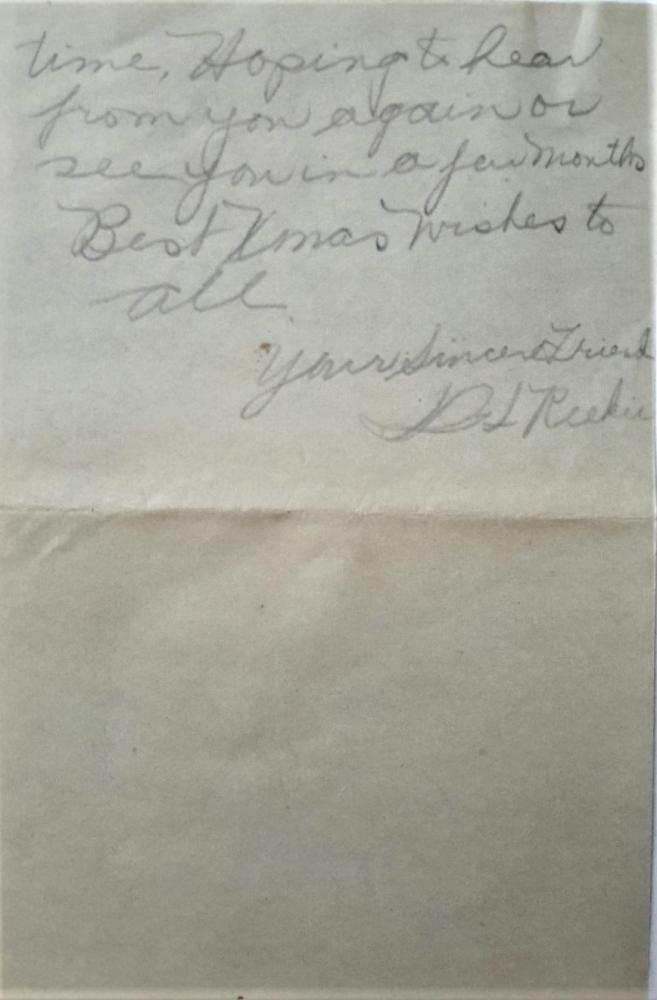 time, Hoping to hear
from you again or
see you in a few months
Best Xmas Wishes to
all
Your Sincere Friend
D L Reekie